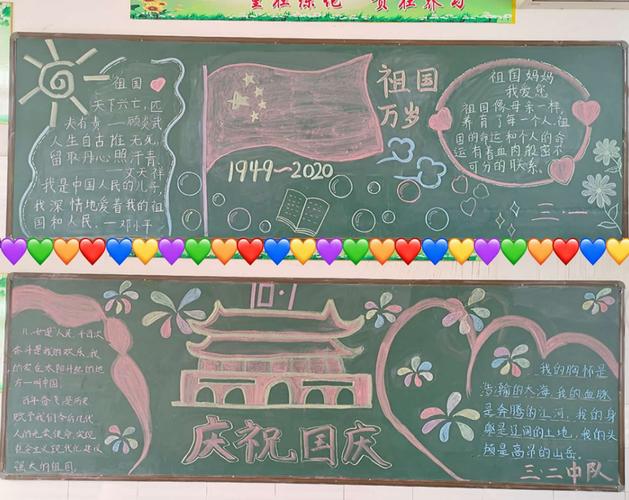 祖国
天下兴亡,匹
夫有责 —顾炎武
人生自古谁无死
留取丹心照汗青.
—文天祥
我是中国人民的儿子,
我深情地爱着我的祖
国和人民.—邓小平
祖国
万岁
1949—2020
祖国妈妈
我爱您
祖国像母亲一样,
养育了每一个人.祖
国的命运和个人的命
运有着血肉般密不
可分的联系.
三.一
10.1
庆祝国庆
奋斗是我的欢乐.我
的家在太阳升起的地
方—叫中国.
强大的祖国.
我的胸怀是
浩瀚的大海,我的血脉
是奔腾的江河,我的身
躯是辽阔的土地,我的头
颅是高昂的山岳.
三.二中队